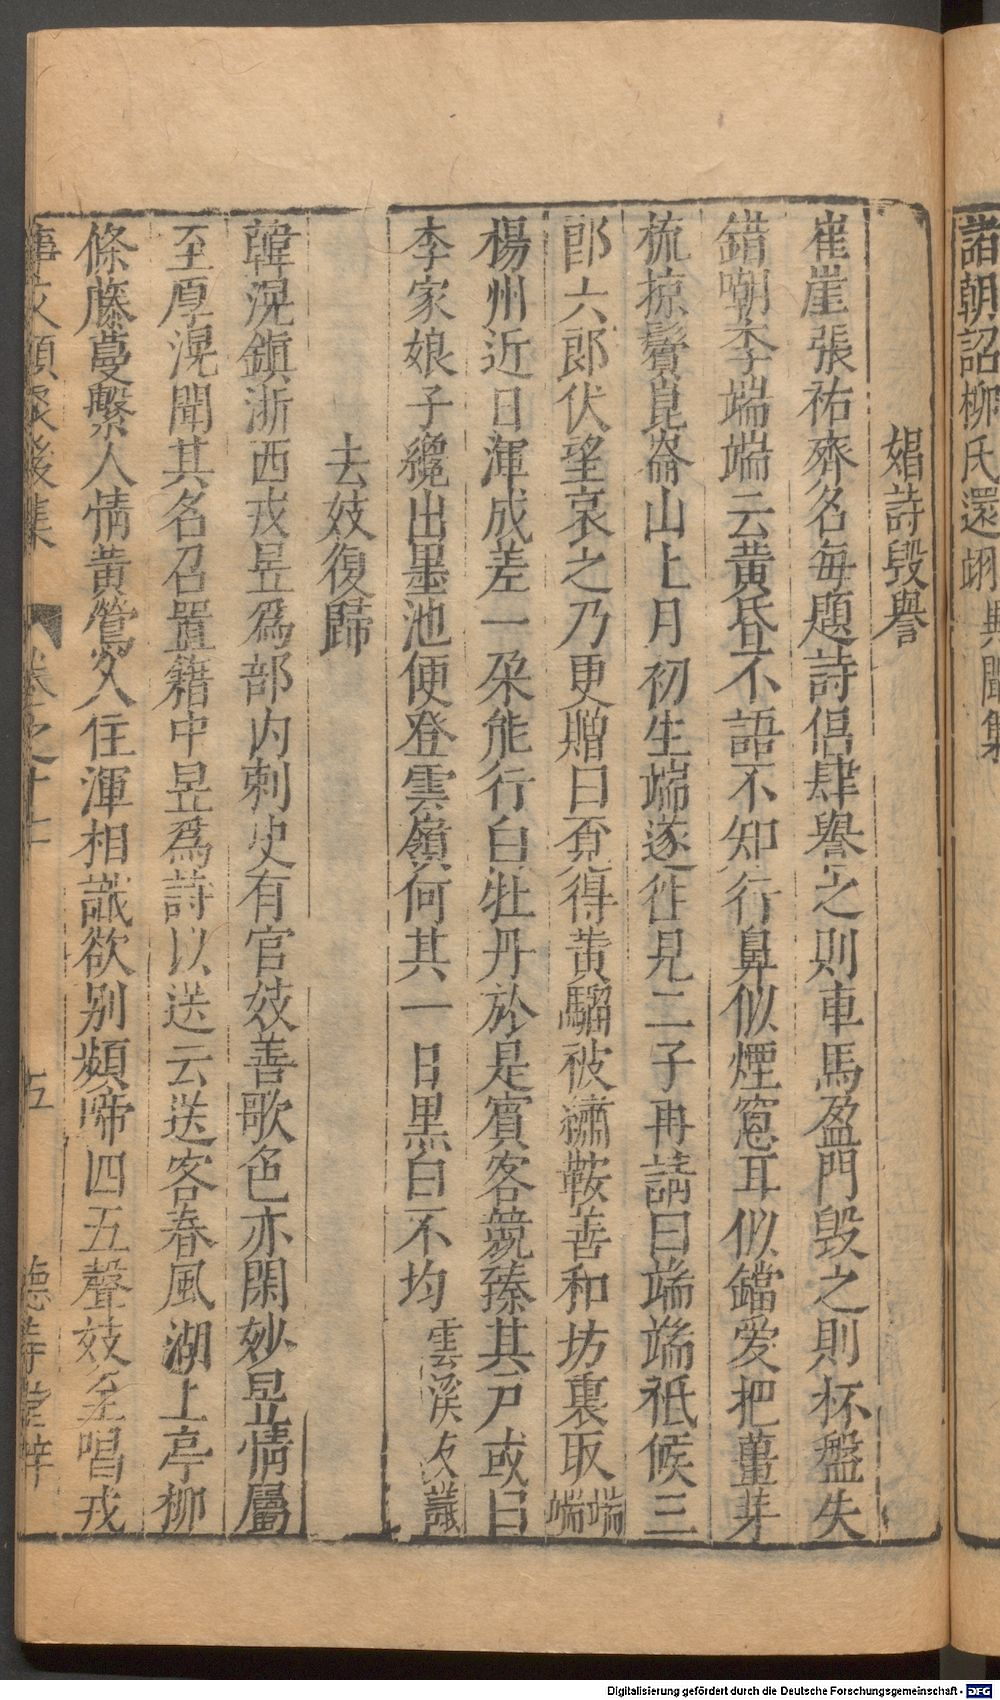 諸朝詔柳氏還翊
異聞集
娼詩毀譽
崔崖張祐齊名每題詩倡肆譽之則車馬盈門毀之則杯盤失
錯嘲李端端云黃昏不語不知行鼻似煙窻耳似鐺爱把薑芽
梳掠鬢崑崙山上月初生端遂徃見二子再請曰端端祗候三
郎六郎伏望哀之乃更贈曰覓得黄騮被繡鞍善和坊裏取端端
楊州近日渾成差一朶能行白牡丹於是賓客競臻其戸或曰
李家娘子纔出墨池便登雲嶺何其一日黒白不均雲溪友議
去妓復歸
韓滉鎮浙西戎昱爲部内刺史有官妓善歌色亦閑妙昱情屬
至厚滉聞其名召置籍中昱爲詩以送云送客春風湖上亭柳
條藤蔓繫人情黄鶯久住渾相識欲别頻啼四五聲妓至唱戎
事文類聚後集 卷之十七 五 德壽堂梓
Digitalisierung gefördert durch die Deutsche Forschungsgemeinschaft - DFG